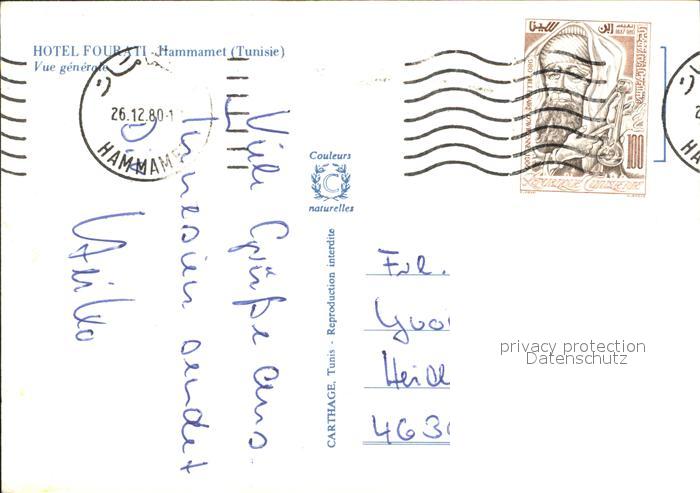 HOTEL FOURATI - Hammamet (Tunisie)
Vue générale
26.12.80-1
HAMMAM
Couleurs
C
naturelles
CARTHAGE, Tunis - Reproduction interdite
Viele Grüße aus
Tunesien sendet
Dir
إبن سينا
100
REPUBLIQUE TUNISIENNE
Frl.
Heid
463
privacy protection
Datenschutz